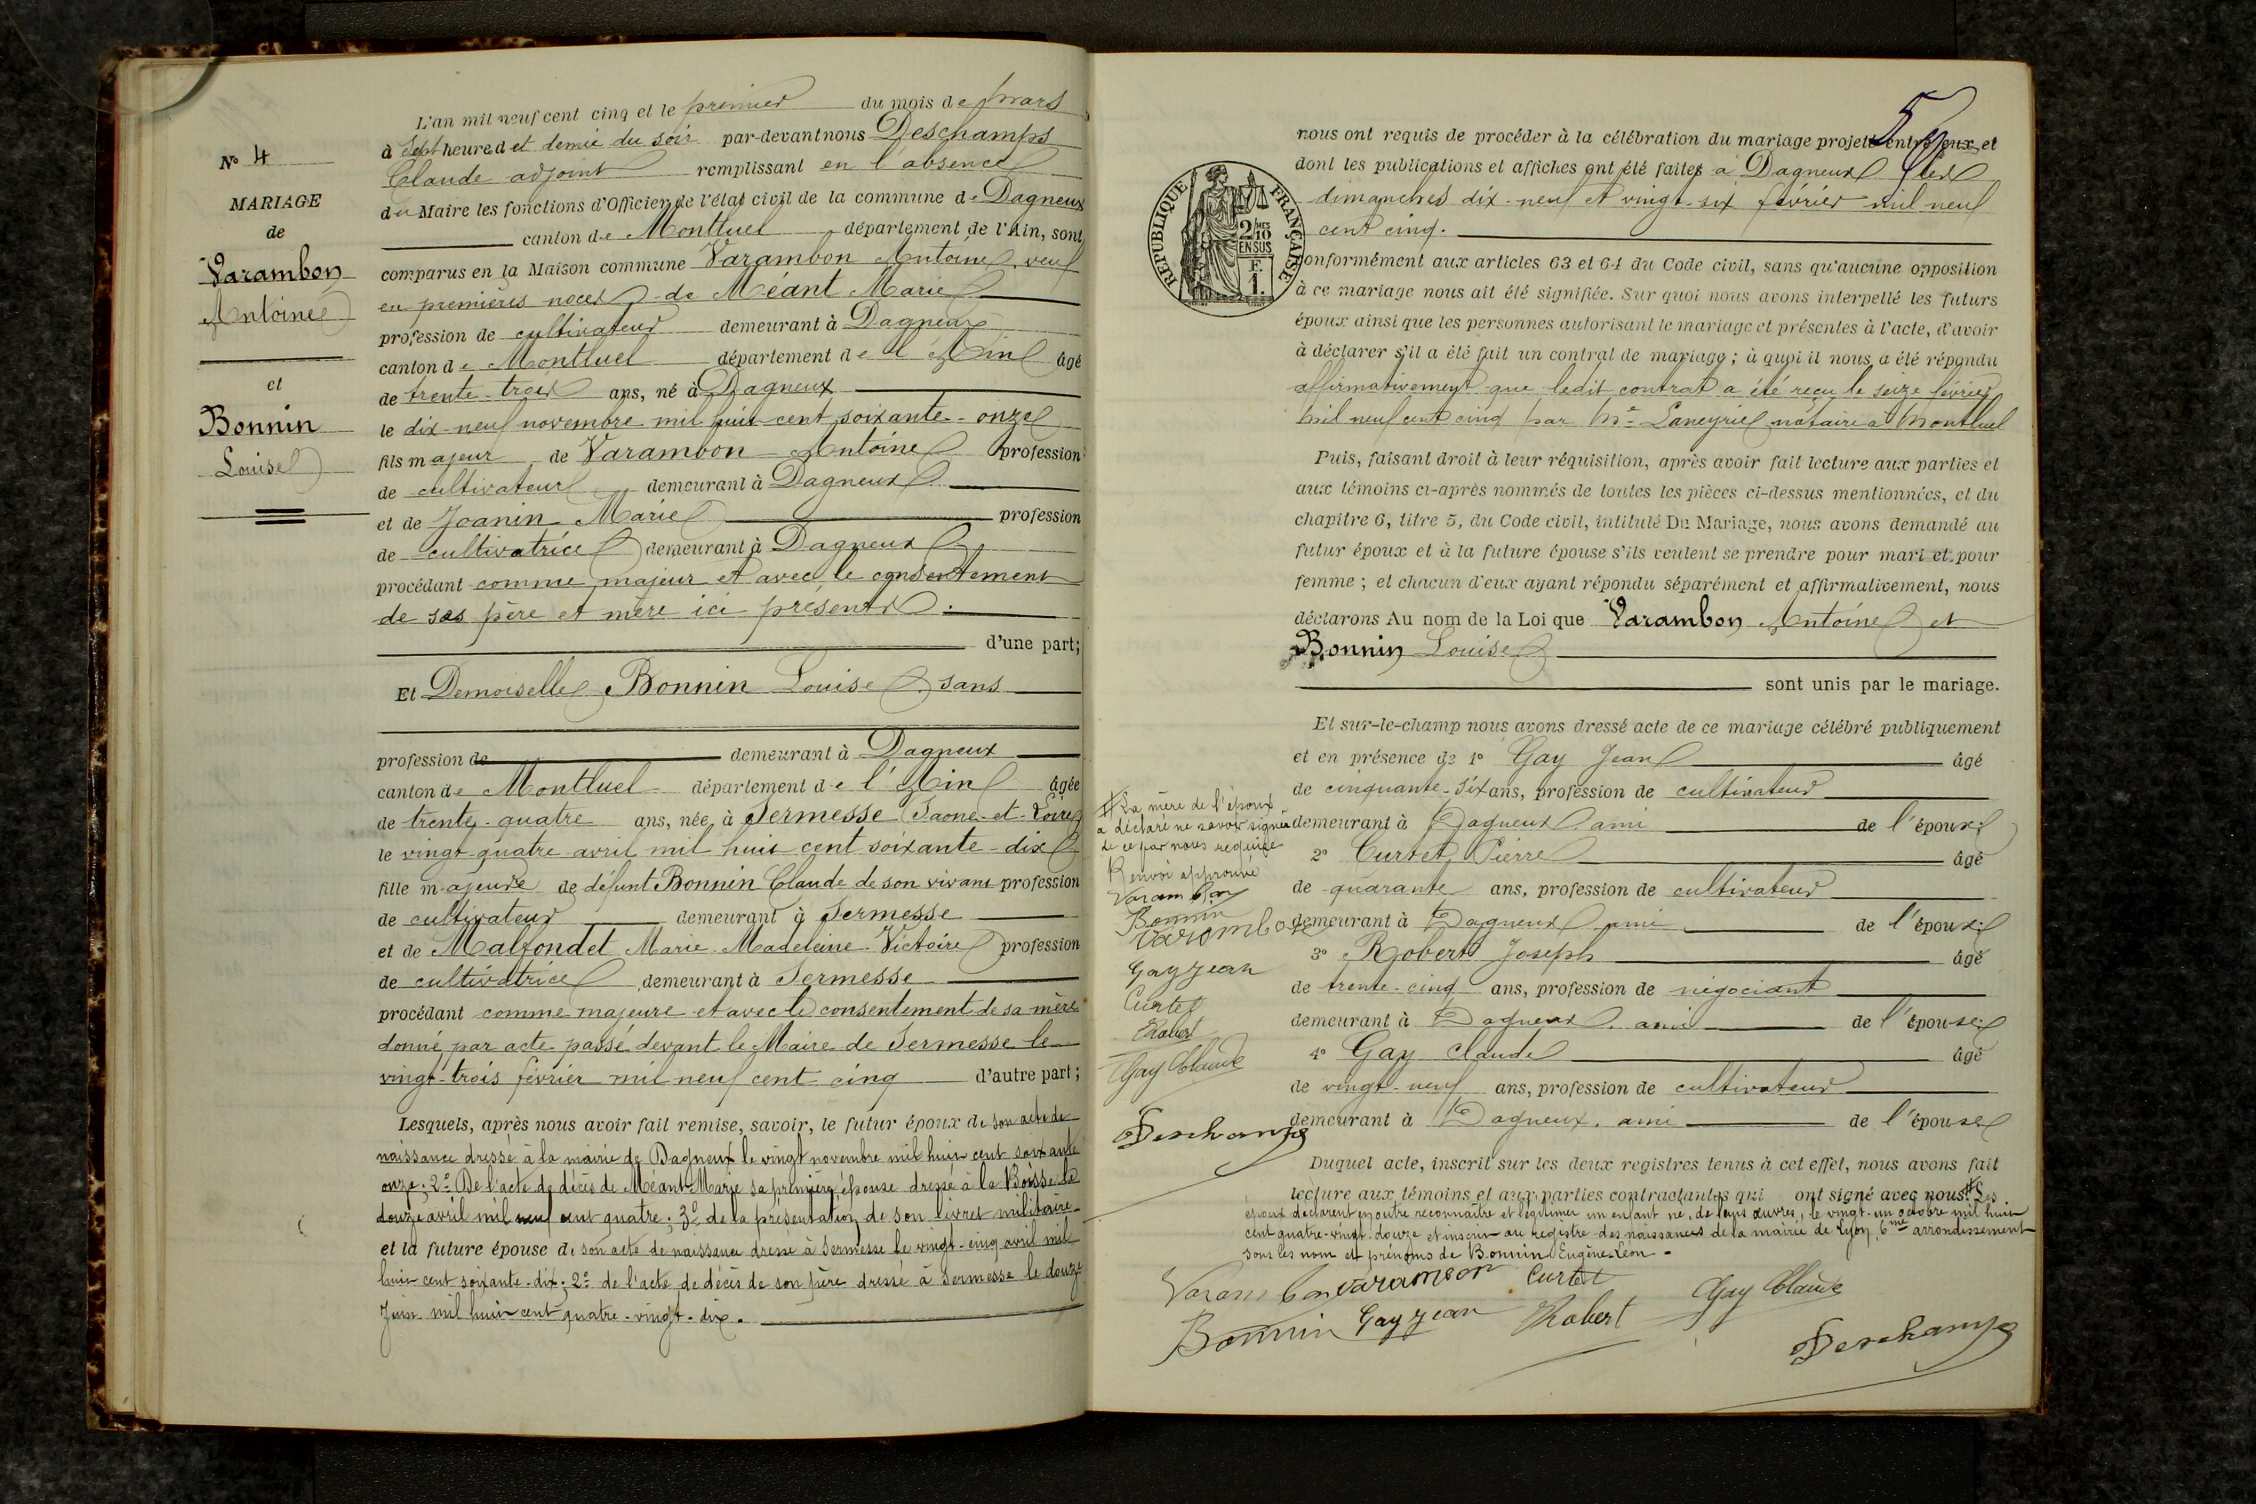 N° 4
MARIAGE
de
Varambon
Antoine
et
Bonnin
Louise
L'an mil neuf cent cinq et le premier du mois de Mars
à Sept heures et demie du soir par-devant nous Deschamps
Claude adjoint remplissant en l'absence
du Maire les fonctions d'Officier de l'état civil de la commune de Dagneux
canton de Montluel département de l'Ain, sont
comparus en la Maison commune Varambon Antoine, veuf
en premières noces de Méant Marie
profession de cultivateur demeurant à Dagneux
canton de Montluel département de l'Ain âgé
de trente-trois ans, né à Dagneux
le dix-neuf novembre mil huit cent soixante-onze
fils majeur de Varambon Antoine profession
de cultivateur demeurant à Dagneux
et de Joanin Marie profession
de cultivatrice demeurant à Dagneux
procédant comme majeur et avec le consentement
de ses père et mère ici présents.
d'une part;
Et Demoiselle Bonnin Louise, sans
profession de demeurant à Dagneux
canton de Montluel département de l'Ain âgée
de trente-quatre ans, née à Sermesse (Saône-et-Loire)
le vingt-quatre avril mil huit cent soixante-dix
fille majeure de défunt Bonnin Claude de son vivant profession
de cultivateur demeurant à Sermesse
et de Malfondet Marie Madeleine Victoire profession
de cultivatrice demeurant à Sermesse
procédant comme majeure et avec le consentement de sa mère
donné par acte passé devant le Maire de Sermesse le
vingt-trois février mil neuf cent cinq d'autre part;
Lesquels, après nous avoir fait remise, savoir, le futur époux de son acte de
naissance dressé à la mairie de Dagneux le vingt novembre mil huit cent soixante
onze; 2° De l'acte de décès de Méant Marie sa première épouse dressé à la Boisse le
douze avril mil neuf cent quatre; 3° de la présentation de son livret militaire
et la future épouse de son acte de naissance dressé à Sermesse le vingt-cinq avril mil
huit cent soixante-dix; 2° de l'acte de décès de son père dressé à Sermesse le douze
Juin mil huit cent quatre-vingt-dix.
5
nous ont requis de procéder à la célébration du mariage projeté entre eux et
dont les publications et affiches ont été faites à Dagneux les
dimanches dix-neuf et vingt-six février mil neuf
cent cinq.
RÉPUBLIQUE FRANÇAISE
2/10 MES
EN SUS
F.
1.
Conformément aux articles 63 et 64 du Code civil, sans qu'aucune opposition
à ce mariage nous ait été signifiée. Sur quoi nous avons interpellé les futurs
époux ainsi que les personnes autorisant le mariage et présentes à l'acte, d'avoir
à déclarer s'il a été fait un contrat de mariage; à quoi il nous a été répondu
affirmativement que ledit contrat a été reçu le seize février
mil neuf cent cinq par Me Laneyrie notaire à Montluel
Puis, faisant droit à leur réquisition, après avoir fait lecture aux parties et
aux témoins ci-après nommés de toutes les pièces ci-dessus mentionnées, et du
chapitre 6, titre 5, du Code civil, intitulé Du Mariage, nous avons demandé au
futur époux et à la future épouse s'ils veulent se prendre pour mari et pour
femme; et chacun d'eux ayant répondu séparément et affirmativement, nous
déclarons Au nom de la Loi que Varambon Antoine et
Bonnin Louise
sont unis par le mariage.
Et sur-le-champ nous avons dressé acte de ce mariage célébré publiquement
et en présence de 1° Gay Jean âgé
de cinquante-six ans, profession de cultivateur
demeurant à Dagneux ami de l'époux;
2° Curtet Pierre âgé
de quarante ans, profession de cultivateur
demeurant à Dagneux ami de l'époux;
3° Robert Joseph âgé
de trente-cinq ans, profession de négociant
demeurant à Dagneux, ami de l'épouse;
4° Gay Claude âgé
de vingt-neuf ans, profession de cultivateur
demeurant à Dagneux, ami de l'épouse
Duquel acte, inscrit sur les deux registres tenus à cet effet, nous avons fait
lecture aux témoins et aux parties contractantes qui ont signé avec nous # Les
époux déclarent en outre reconnaître et légitimer un enfant né, de leurs œuvres, le vingt-un octobre mil huit
cent quatre-vingt-douze et inscrit au registre des naissances de la mairie de Lyon 6me arrondissement
sous les nom et prénoms de Bonnin Eugène Léon -
Varambon Varambon Curtet Gay Claude
Bonnin Gay Jean Robert Deschamps
# La mère de l'époux
a déclaré ne savoir signer
de ce par nous requise
Renvoi approuvé
Varambon
Bonnin
Varambon
Gay Jean
Curtet
Robert
Gay Claude
Deschamps